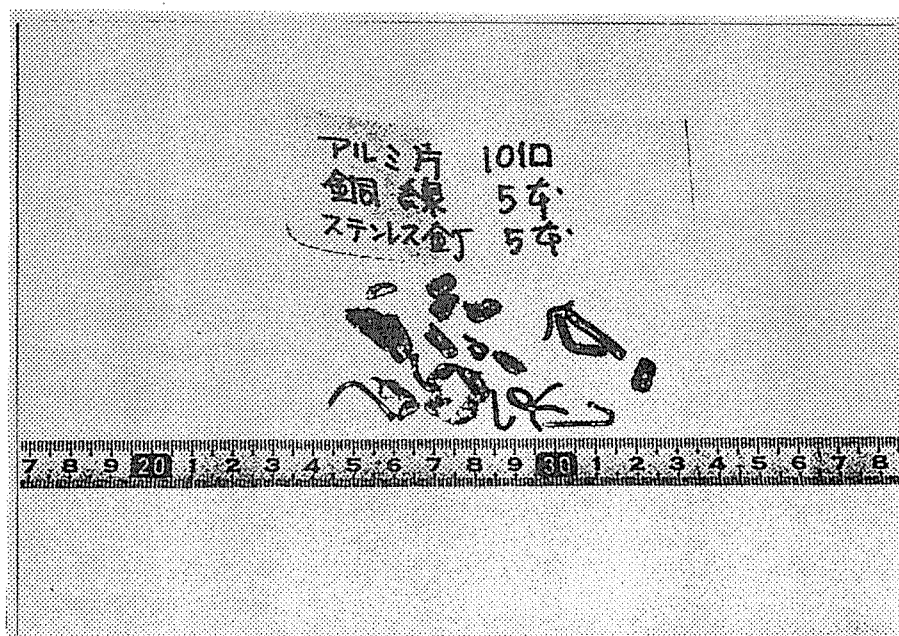 アルミ片 10個
銅線 5本
ステンレス釘 5本
7 8 9 20 1 2 3 4 5 6 7 8 9 30 1 2 3 4 5 6 7 8